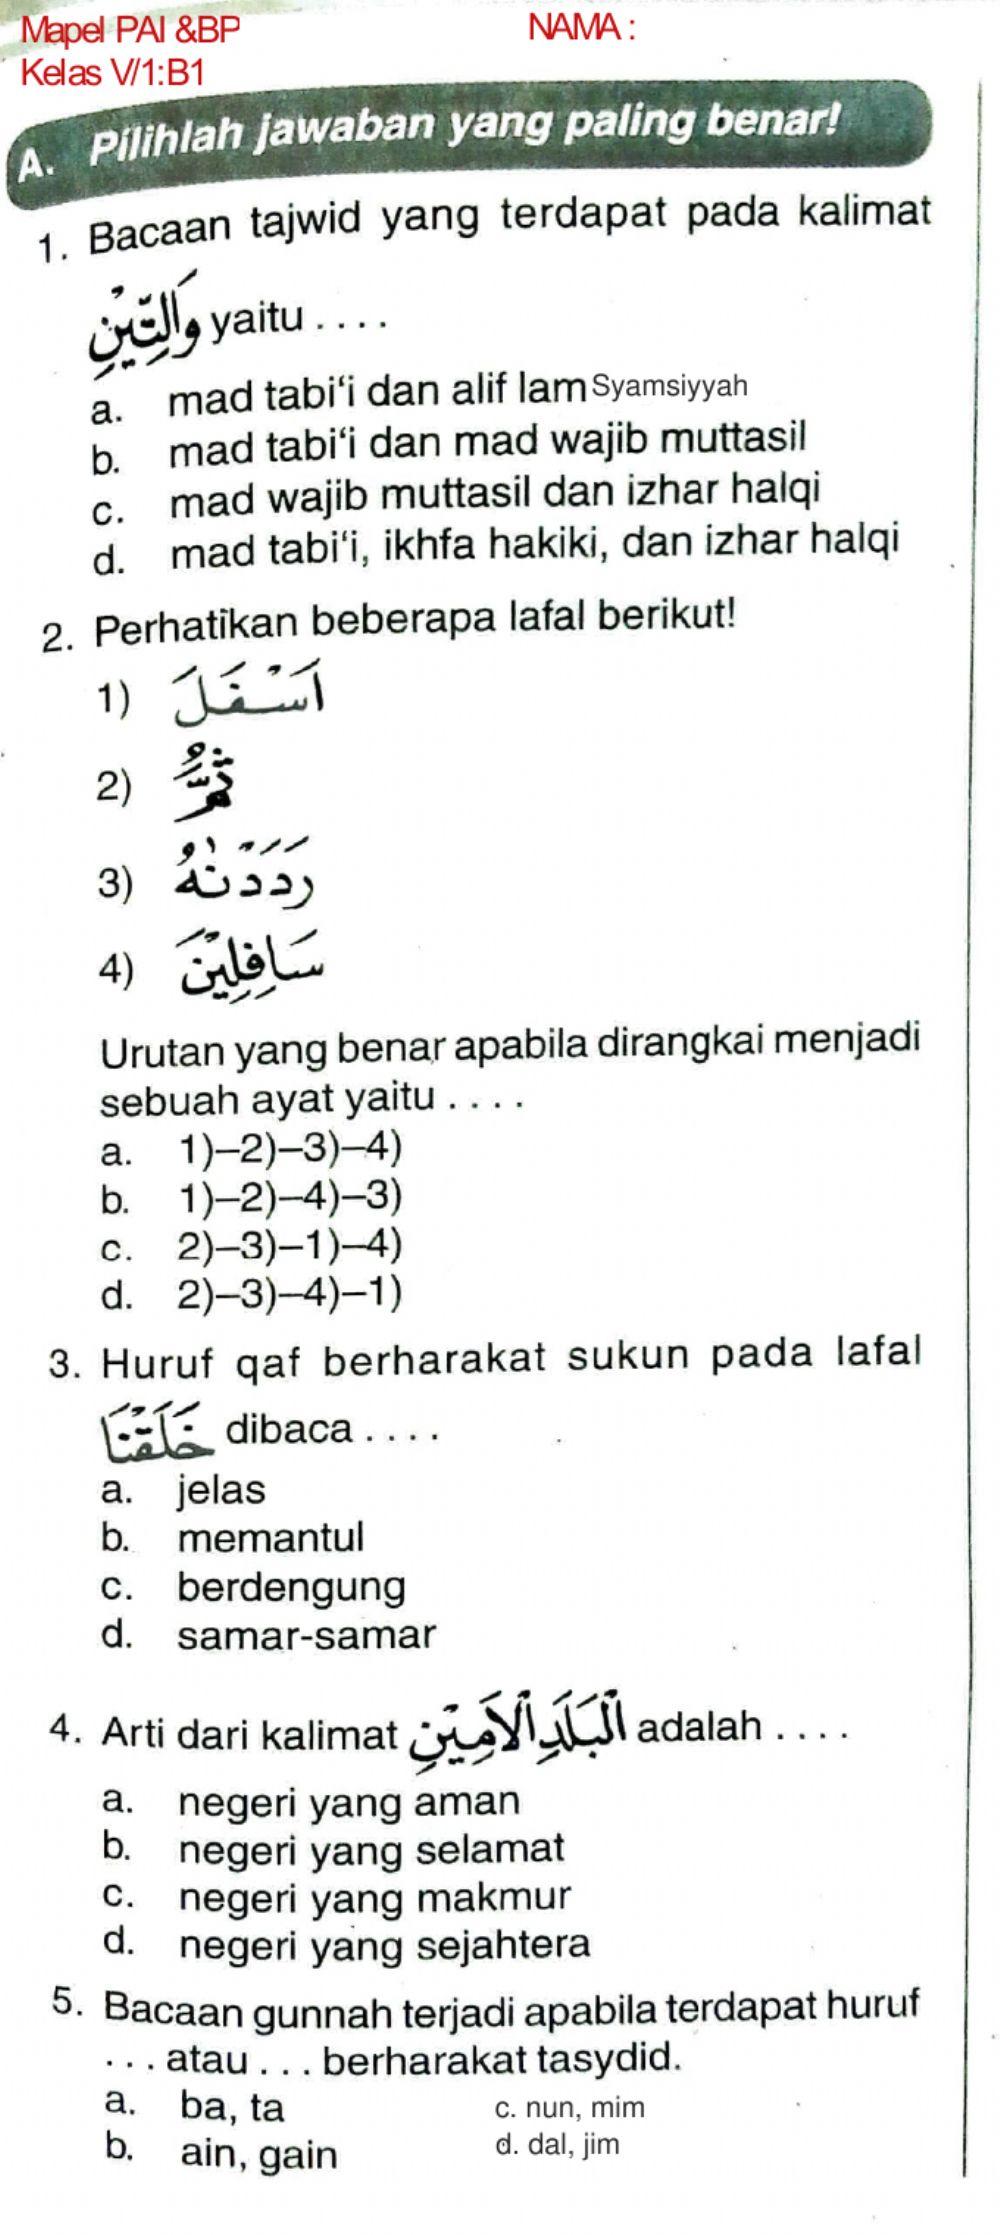 Mapel PAI &BP
NAMA :
Kelas V/1:B1
A. Pilihlah jawaban yang paling benar!
1. Bacaan tajwid yang terdapat pada kalimat
وَالتِّيْنِ yaitu . . . .
a. mad tabi‘i dan alif lam Syamsiyyah
b. mad tabi‘i dan mad wajib muttasil
c. mad wajib muttasil dan izhar halqi
d. mad tabi‘i, ikhfa hakiki, dan izhar halqi
2. Perhatikan beberapa lafal berikut!
1) اَسْفَلَ
2) ثُمَّ
3) رَدَدْنٰهُ
4) سَافِلِيْنَ
Urutan yang benar apabila dirangkai menjadi
sebuah ayat yaitu . . . .
a. 1)–2)–3)–4)
b. 1)–2)–4)–3)
c. 2)–3)–1)–4)
d. 2)–3)–4)–1)
3. Huruf qaf berharakat sukun pada lafal
خَلَقْنَا dibaca . . . .
a. jelas
b. memantul
c. berdengung
d. samar-samar
4. Arti dari kalimat الْبَلَدِ الْاَمِيْنِ adalah . . . .
a. negeri yang aman
b. negeri yang selamat
c. negeri yang makmur
d. negeri yang sejahtera
5. Bacaan gunnah terjadi apabila terdapat huruf
. . . atau . . . berharakat tasydid.
a. ba, ta
c. nun, mim
b. ain, gain
d. dal, jim